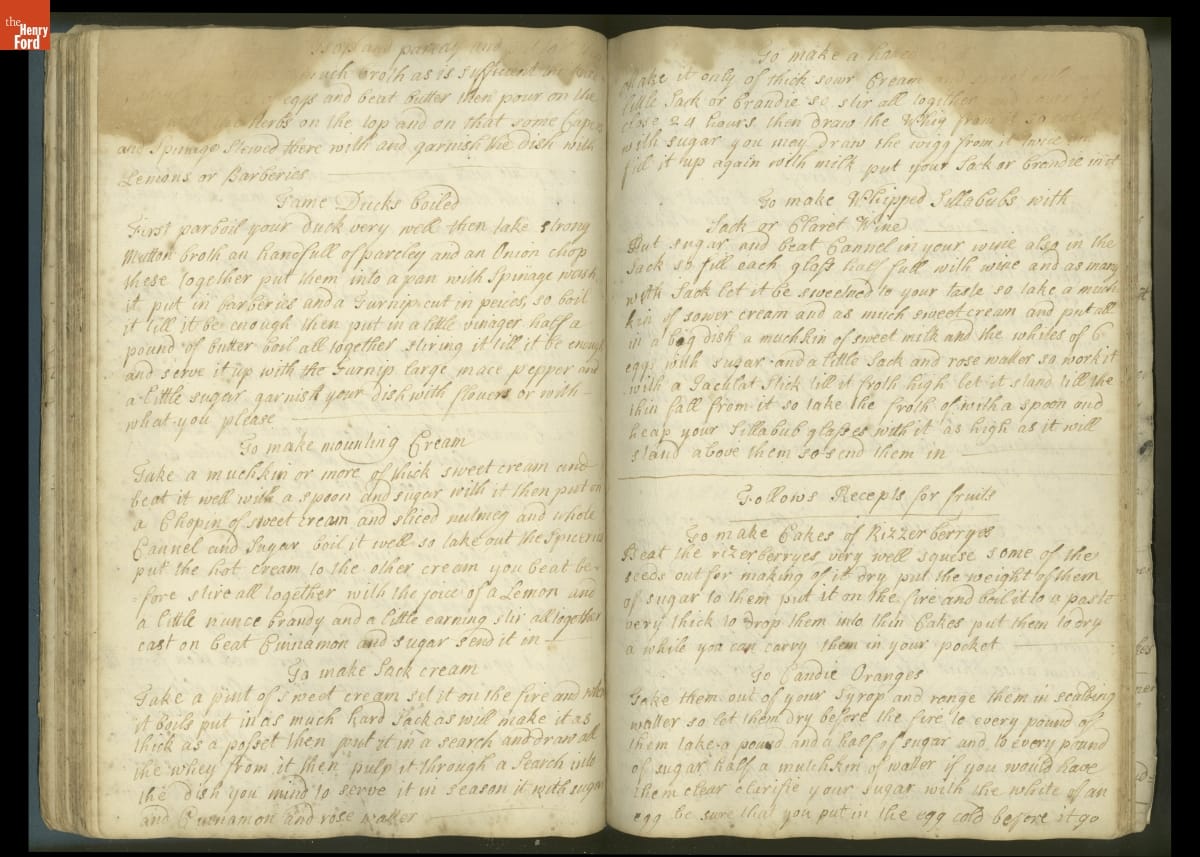 the
Henry
Ford
and parsley and
much broth as is sufficient
eggs and beat butter then pour on the
herbs on the top and on that some Capers
and Spinage Stewed there with and garnish the dish with
Lemons or Barberies
Tame Ducks boiled
First parboil your duck very well then take strong
Mutton broth an handfull of parsley and an Onion chop
these together put them into a pan with Spinage wash
it put in Barberies and a Turnip cut in peices, so boil
it till it be enough then put in a little vinager half a
pound of butter boil all together stiring it till it be enough
and serve it up with the Turnip large mace pepper and
a little sugar garnish your dish with flovers or with
what you please
To make mounting Cream
Take a muchkin or more of thick sweet cream and
beat it well with a spoon and sugar with it then put on
a Chopin of sweet cream and sliced nutmeg and whole
Cannel and Sugar boil it well so take out the Spiceries
put the hot cream to the other cream you beat be-
-fore stire all together with the joice of a Lemon and
a little nunce brandy and a little earning stir all together
cast on beat Cinnamon and sugar send it in
To make Sack cream
Take a pint of sweet cream set it on the fire and when
it boils put in as much hard Sack as will make it as
thick as a posset then put it in a search and draw all
the whey from it then pulp it through a Search into
the dish you mind to serve it in season it with sugar
and Cinnamon and rose watter
To make a
Make it only of thick sour Cream and
little Sack or brandie so stir all together
close 24 hours then draw the Whig from it
with sugar you may draw the wigg from it twice
fill it up again with milk put your Sack or brandie in it
To make Whipped Sillabubs with
Sack or Claret Wine
Put sugar and beat Cannel in your wine also in the
Sack so fill each glass half full with wine and as many
with Sack let it be sweetned to your taste so take a much
kin of sower cream and as much sweet cream and put all
in a big dish a muchkin of sweet milk and the whites of 6
eggs with sugar and a little Sack and rose watter so work it
with a Jaculat stick till it froth high let it stand till the
thin fall from it so take the froth of with a spoon and
heap your Sillabub glasses with it as high as it will
stand above them so send them in
Follows Recepts for fruits
To make Cakes of Rizzerberryes
Beat the rizerberryes very well squese some of the
seeds out for making of it dry put the weight of them
of sugar to them put it on the fire and boil it to a paste
very thick to drop them into thin Cakes put them to dry
a while you can carry them in your pocket
To Candie Oranges
Take them out of your Syrop and range them in scalding
watter so let them dry before the fire to every pound of
them take a pound and a half of sugar and to every pound
of sugar half a mutchkin of watter if you would have
them clear clarifie your sugar with the white of an
egg be sure that you put in the egg cold before it go